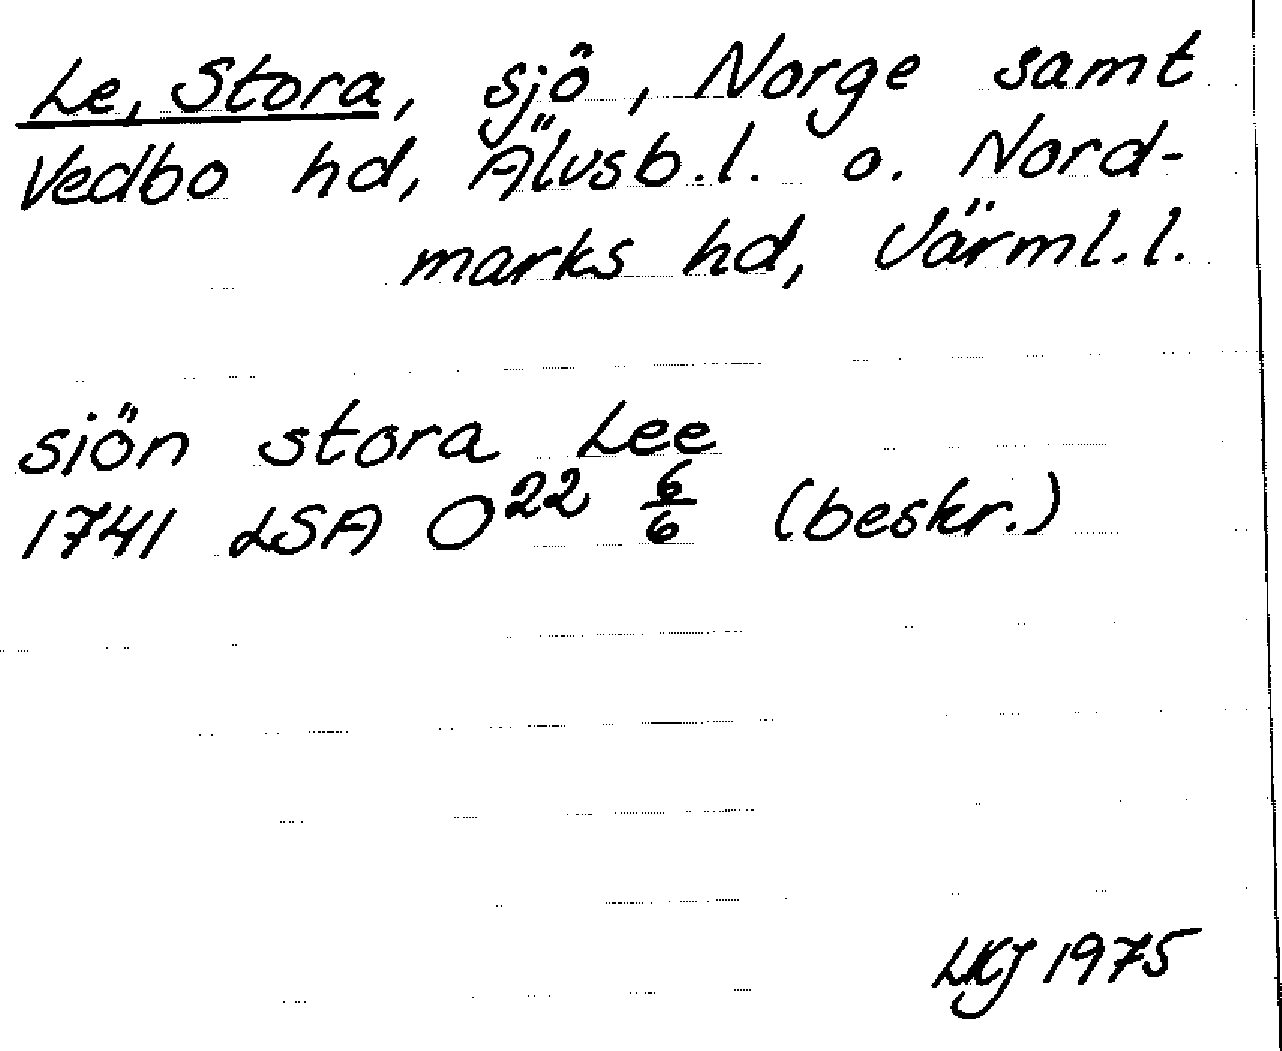 Le, Stora, sjö, Norge samt
Vedbo hd, Älvsb.l. o. Nord-
marks hd, Värml.l.
siön stora Lee
1741 LSA O²² 6/6 (beskr.)
LKJ 1975